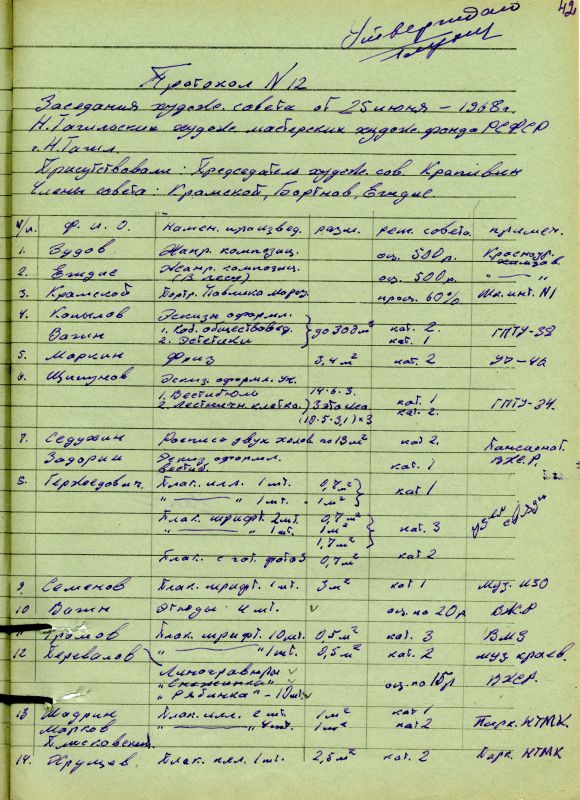 42
Утверждаю
Протокол N 12
Заседания худож. совета от 25 июня – 1968 г.
Н. Тагильских худож. мастерских худож. фонда РСФСР
г. Н. Тагил.
Присутствовали: Председатель худож. сов. Крапивин
Члены совета: Крамской, Бортнов, Егидис.
н/п. Ф. И. О. Намен. произвед. разм. реш. совета. примеч.
1. Зудов Жанр. композиц. оц. 500 р. Красноур.
2. Егидис Жанр. композиц. оц. 500 р. — " —
(В лесу)
3. Крамской Портр. Павлика Мороз. проц. 60% Шк. инт. N1
4. Копылов Эскизы оформл.
1. Каб. обществовед. до 300 м² кат. 2. ГПТУ-38
Вагин 2. Эстетики кат. 1
5. Маркин Фриз 3,4 м² кат. 2 УЧ-42
6. Щипунов Эскиз. оформл. уч.
1. Вестибюль 14·6·3. кат. 1
2. Лестничн. клетка. 3 этажа кат. 2. ГПТУ-34.
(10·5·3,1)×3
7. Седухин Роспись двух холлов по 13 м² кат 2. Пансионат.
Задорин Эскиз оформл. кат. 1 ВЖР.
вестиб.
8. Терхоедович. Плак. илл. 1 шт. 0,7 м² кат 1
" — " 1 шт. 1 м²
Плак. шрифт. 2 шт. 0,7 м²
" — " 1 шт. 1 м² кат. 3
1,7 м²
Плак. с гот. фото 3 0,7 м² кат 2
9. Семенов Плак. шрифт. 1 шт. 3 м² кат 1 Муз. ИЗО
10 Вагин Этюды 4 шт. оц. по 20 р ВЖР
11 Громов Плак. шрифт. 10 шт. 0,5 м² кат. 3 ВМЗ
12 Перевалов " — " 1 шт. 0,5 м² кат. 2 муз краев.
Линогравюры
"Снежинка" оц. по 15 р ВЖР.
"Рябинка" - 10 шт.
13 Шадрин Плак. илл. 2 шт. 1 м² кат 1
Марков " — " 4 шт. 1 м² кат 2 Парк. НТМК.
Плисковский.
14. Хрущев. Плак. илл. 1 шт. 2,5 м² кат. 2 Парк. НТМК